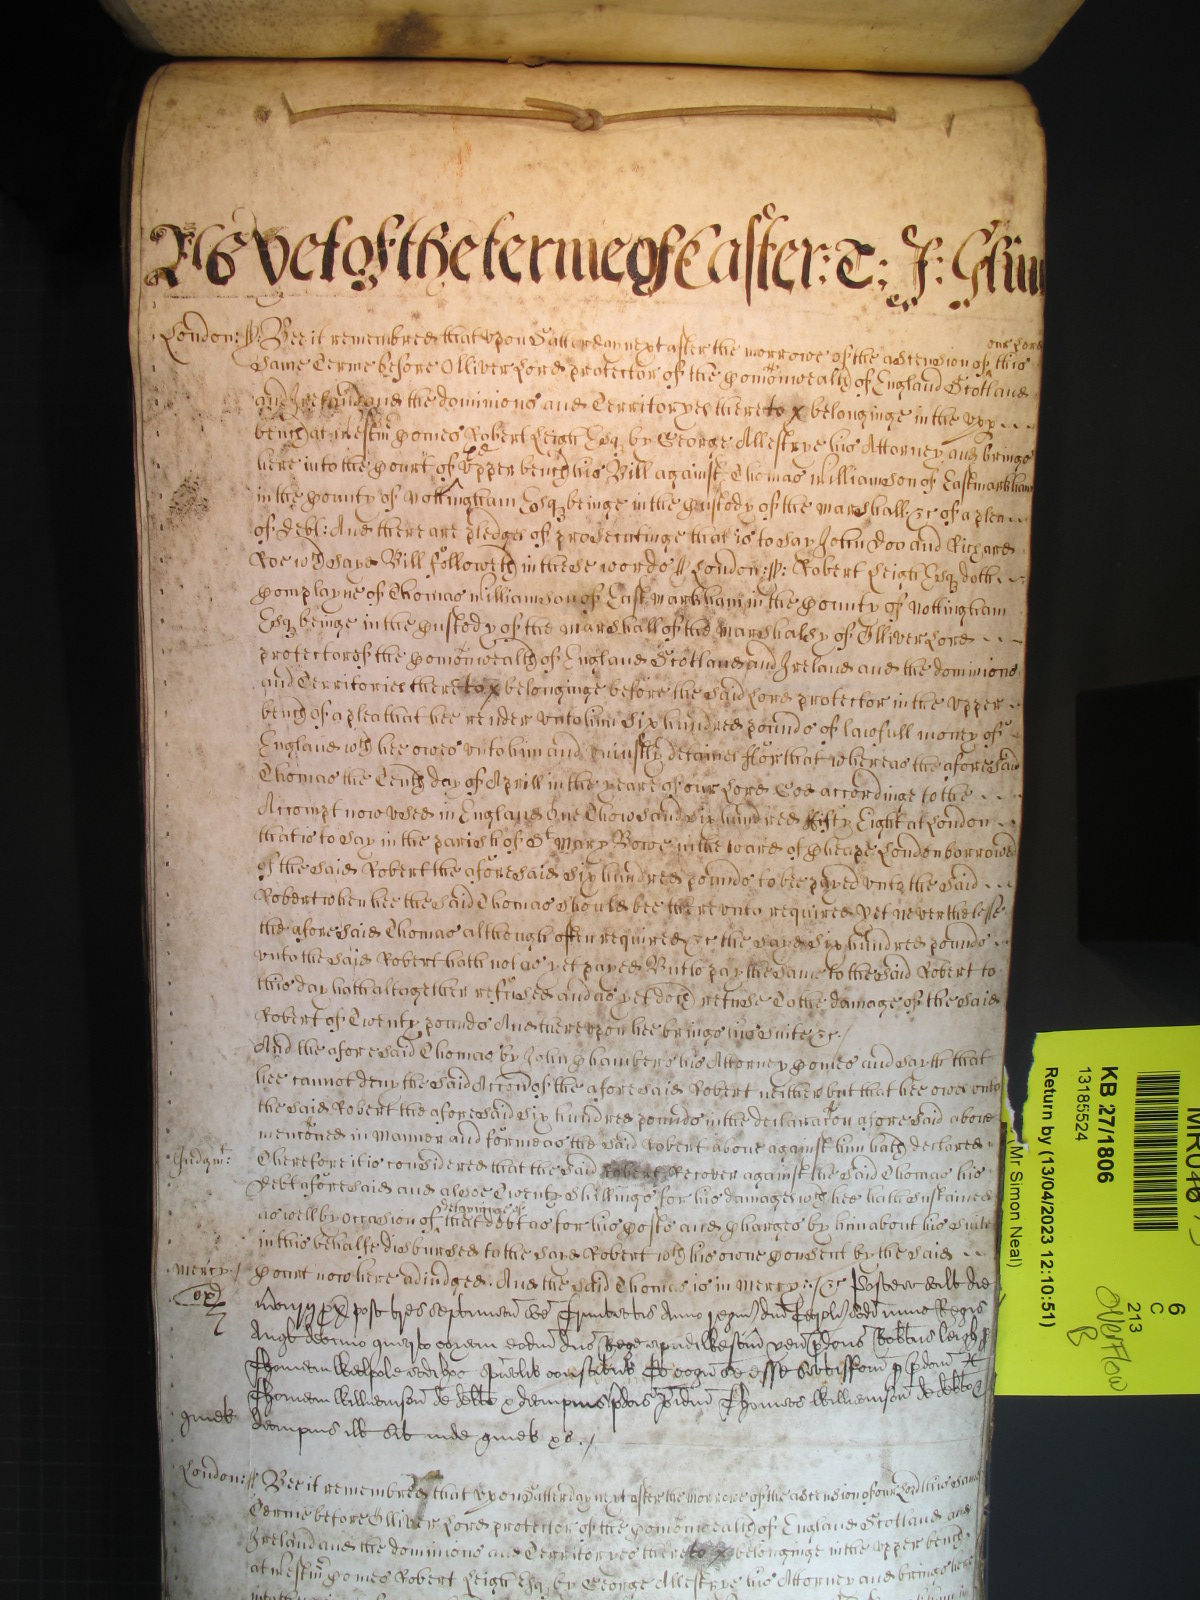 As Yet of the terme of Easter: T: J: Glin
London: ss: Bee it remembred that upon Satterday next after the morrowe of the ascension of our Lord this
same Terme before Olliver Lord protector of the Comonwealth of England Scotland
and Ireland and the dominions and Territoryes thereto belonginge in the upp
bench at Westm̄ Comes Robert Leigh Esqꝫ by George Allestrye his Attorney and brings
here into the Court of the Upper bench his Bill against Thomas Williamson of Eastmarkham
in the County of Nottingham Esqꝫ beinge in the Custody of the Marshall &c of a plea
of debt: And there are pledges of prosecutinge that is to say John Doo and Richard
Roe wch sayd Bill followeth in these words ss London: ss: Robert Leigh Esqꝫ doth
Complayne of Thomas Williamson of East Markham in the County of Nottingham
Esqꝫ beinge in the Custody of the Marshall of the Marshalsy of Olliver Lord
protector of the Comonwealth of England Scotland and Ireland and the dominions
and Territories thereto belonginge before the said Lord protector in the upper
bench of a plea that hee render unto him Six hundred pounds of lawfull money of
England wch hee owes unto him and uniustly detaines ffor that whereas the aforesaid
Thomas the Tenth day of Aprill in the yeare of our Lord God accordinge to the
Accompt now used in England One Thowsand Six hundred ffifty Eight at London
that is to say in the parish of St Mary Bowe in the ward of Cheape London borrowed
of the said Robert the aforesaid Six hundred pounds to bee payed unto the said
Robert when hee the said Thomas should bee thereunto required Yet neverthelesse
the aforesaid Thomas although often required &c the sayd Six hundred pounds
unto the said Robert hath not as yet payed But to pay the same to the said Robert to
this day hath altogether refused and as yet doth refuse To the damage of the said
Robert of Twenty pounds And thereupon hee brings his suite &c./
And the aforesaid Thomas by John Chambers his Attorney Comes and sayth that
hee cannot deny the said Accon of the aforesaid Robert neither but that hee owes unto
the said Robert the aforesaid Six hundred pounds in the declaration aforesaid above
mencōned in Manner and forme as the said Robert above against him hath declared
Judgmt: Therefore it is considered that the said Robert Recover against the said Thomas his
debt aforesaid and alsoe Twenty Shillings for his damages wch hee hath Sustained
as well by occasion of detayninge of that debt as for his Costs and Charges by him about his suite
in this behalfe disbursed to the sayd Robert wth his owne Consent by the said
Mercy:/ Court now here adiudged. And the said Thomas is in Mercy: &c Postea
post septimanas Trinitatis Anno regni dn̄i Caroli scd̄i nunc Regis
Angl decimo quinto coram eodem dn̄o Rege apud Westm̄ ven̄ p̄dcūs Robt̄us Leigh p
Thomam Walpole
Thomam Williamson de debto & dampnis p̄dcis Ideo Thomas Williamson de debto
quiet dampnis ill sit inde quiet &c./
London: ss: Bee it remembred that upon Satterday next after the morrowe of the ascension of our Lord this same
Terme before Olliver Lord protector of the Comonwealth of England Scotland and
Ireland and the dominions and Territoryes thereto belonginge in the upper bench
at Westm̄ Comes Robert Leigh Esqꝫ by George Allestrye his Attorney and brings here
KB 27/1806
13185524
Return by (13/04/2023 12:10:51)
(Mr Simon Neal)
6
C
213
Overflow
B